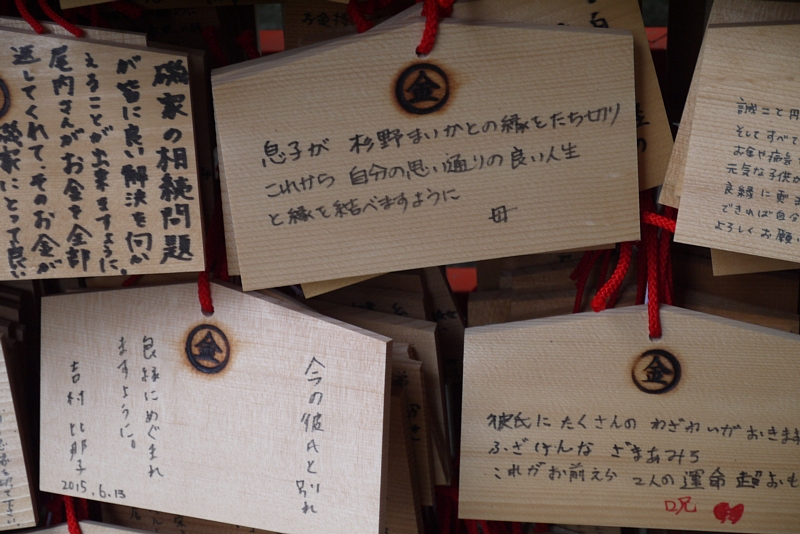 磯家の相続問題
が皆に良い解決を向か
えることが出来ますように。
尾内さんがお金を全部
返してくれて、そのお金が
磯家にとって良い
金
息子が 杉野まいかとの縁をたち切り
これから 自分の思い通りの良い人生
と縁を結べますように
母
誠こと円
そしてすべて
お金や病気
元気な子供が
良縁に
できれば自分
よろしくお願い
金
今の彼氏と別れ
良縁にめぐまれ
ますように。
吉村 比那子
2015.6.13
金
彼氏に たくさんの わざわいが おきます
ふざけんな ざまあみろ
これがお前えら 2人の運命 超おも
呪